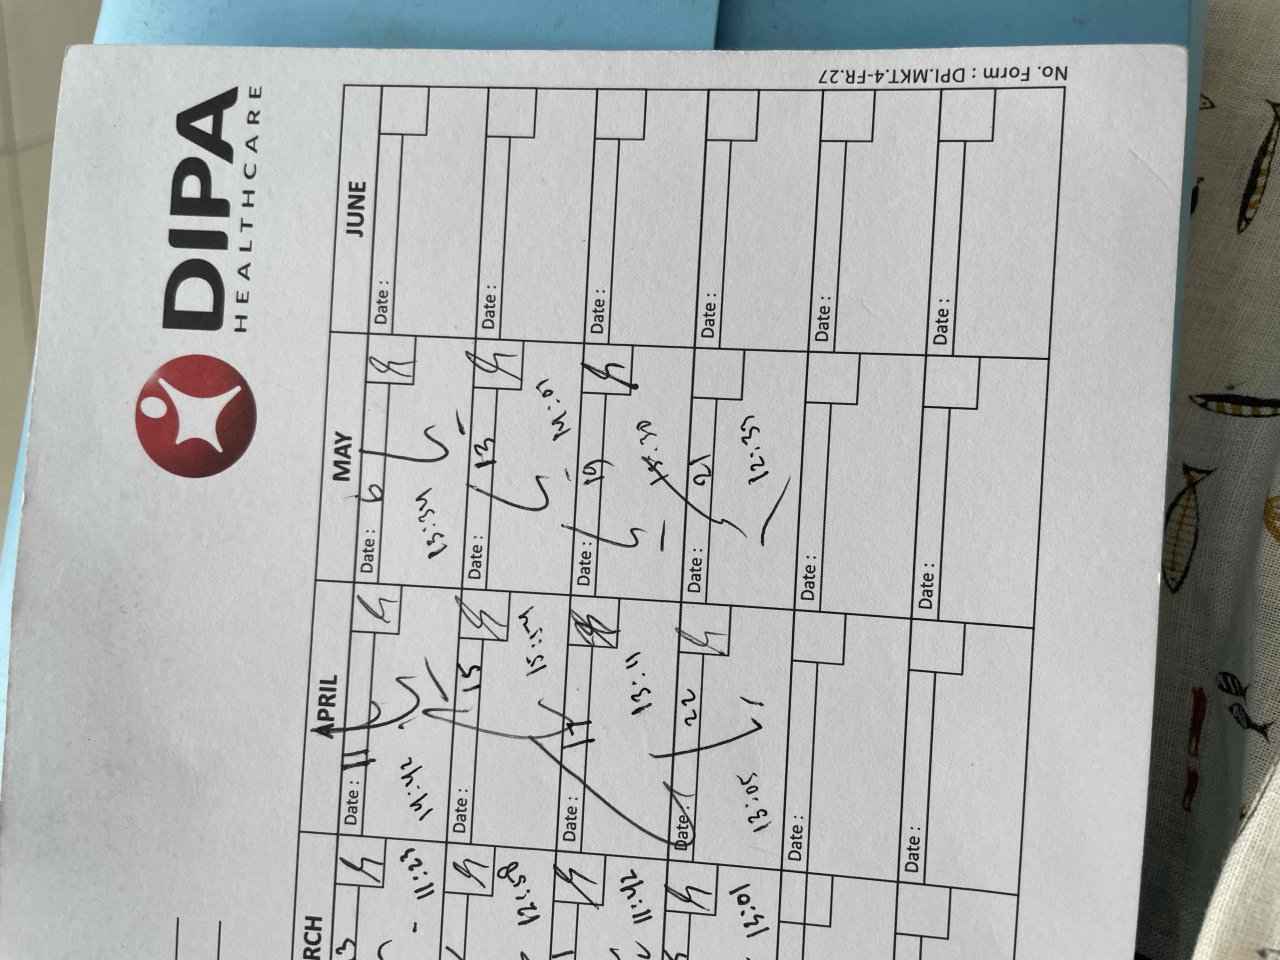 DIPA
HEALTHCARE
RCH
3
11:23
12:58
11:42
13:01
APRIL
Date : 11
14:42
Date : 15
15:54
Date : 17
13:11
Date : 22
13:05
Date :
Date :
MAY
Date : 6
13:34
Date : 13
Date : 19
Date : 21
12:35
Date :
Date :
JUNE
Date :
Date :
Date :
Date :
Date :
Date :
No. Form : DPI.MKT.4-FR.27